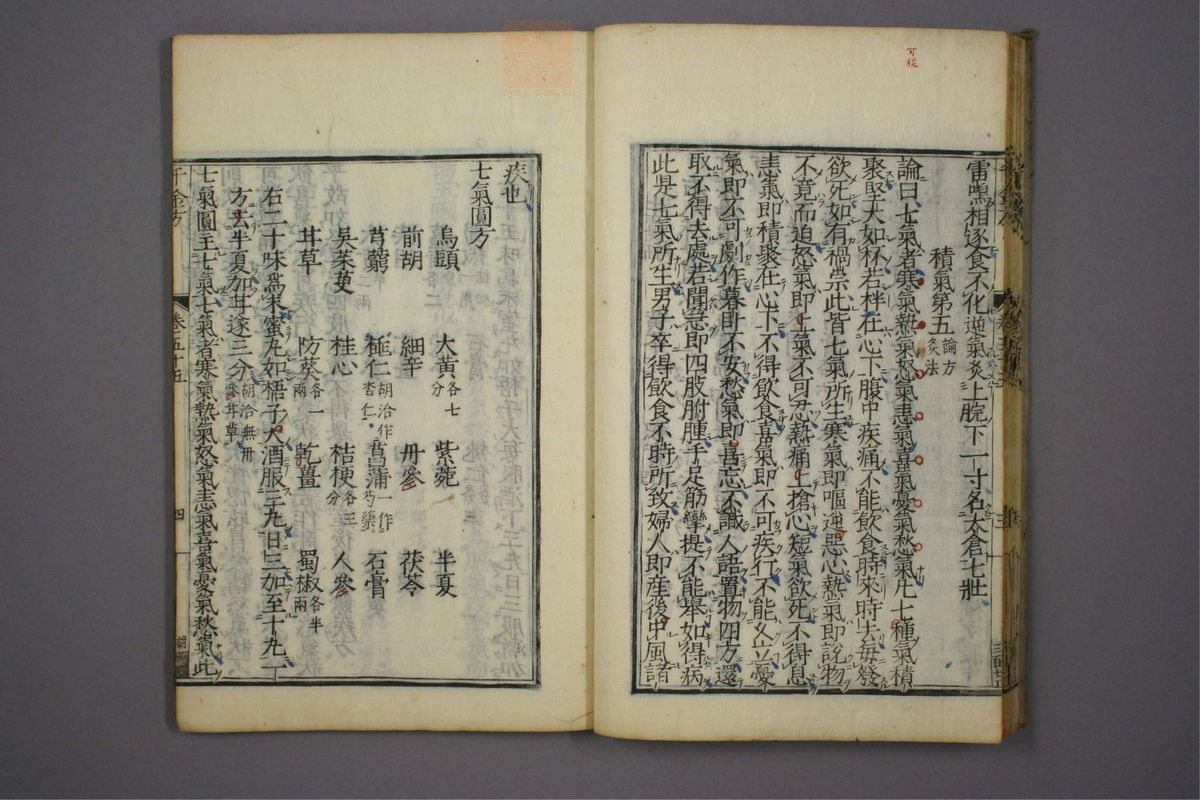 可從
雷鳴相逐食不化逆氣灸上脘下一寸名太倉七壯
積氣第五 論 方 灸法
論曰七氣者寒氣熱氣怒氣恚氣喜氣憂氣愁氣凡七種氣積
聚堅大如杯若柈在心下腹中疾痛不能飲食時來時去每發
欲死如有禍祟此皆七氣所生寒氣即嘔逆惡心熱氣即說物
不竟而迫怒氣即上氣不可忍熱痛上搶心短氣欲死不得息
恚氣即積聚在心下不得飲食喜氣即不可疾行不能久立憂
氣即不可劇作暮臥不安愁氣即喜忘不識人語置物四方還
取不得去處若聞急即四肢胕腫手足筋攣捉不能舉如得病
此是七氣所生男子卒得飲食不時所致婦人即産後中風諸
疾也
七氣圓方
烏頭 大黃各七分 紫菀 半夏
前胡 細辛 丹參 茯苓
芎藭 㮈仁胡洽作杏仁 菖蒲一作芍藥 石膏
吳茱萸 桂心 桔梗各三分 人參
甘草 防葵各一兩 乾薑 蜀椒各半兩
右二十味爲末蜜丸如梧子大酒服三丸日三加至十丸一
方去半夏加甘遂三分胡洽無丹參甘草
七氣圓主七氣七氣者寒氣熱氣怒氣恚氣喜氣憂氣愁氣此
千金方
卷五十五
四